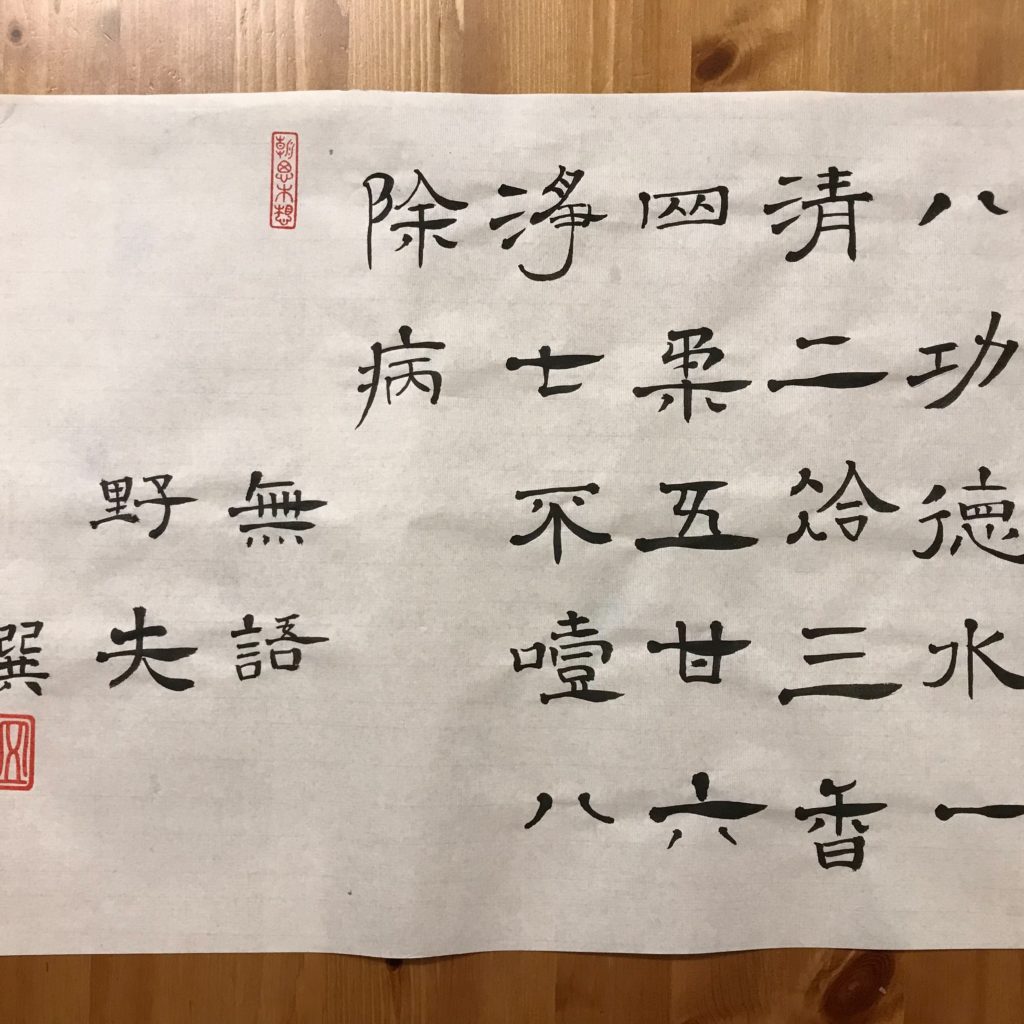 八功德水一
清二冷三香
四柔五甘六
淨七不噎八
除病
無語
野夫
撰